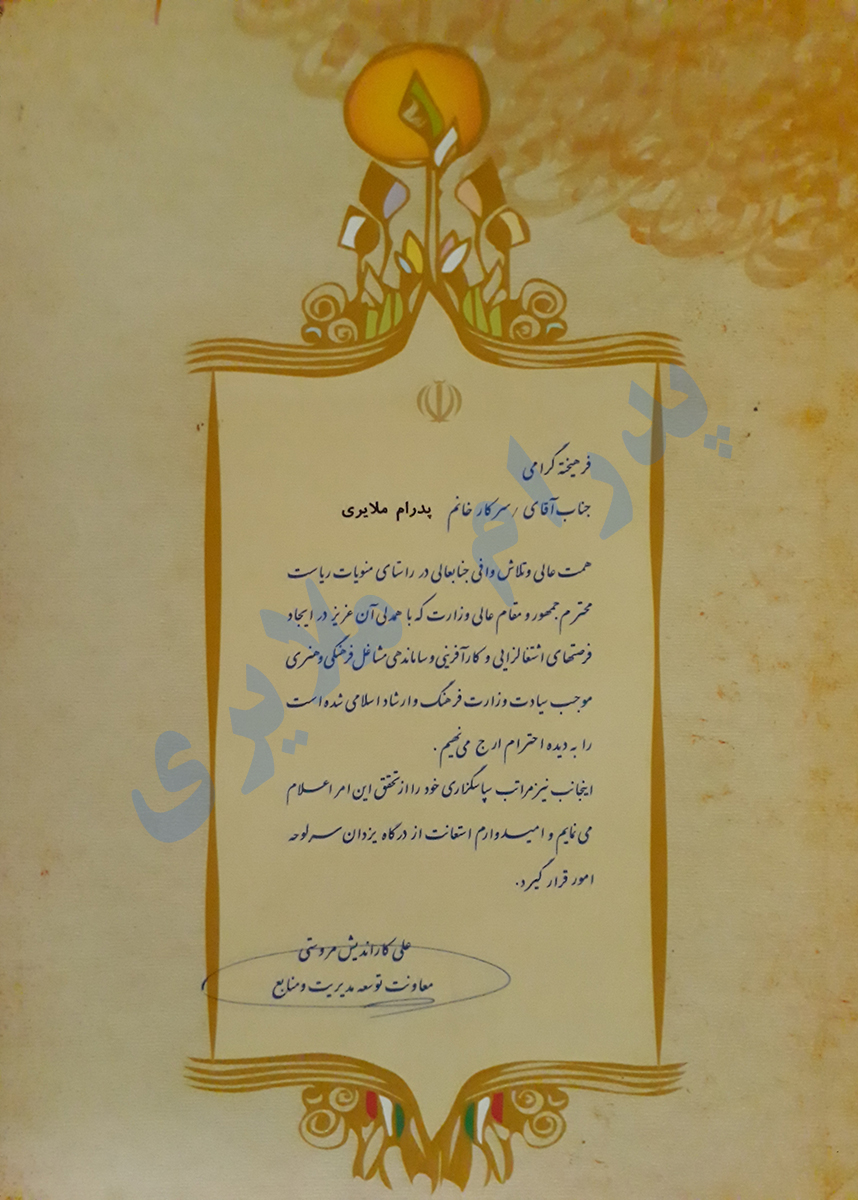 فرهیختهٔ گرامی
جناب آقای / سرکار خانم پدرام ملایری
همت عالی و تلاش وافی جنابعالی در راستای منویات ریاست
محترم جمهور و مقام عالی وزارت که با همدلی آن عزیز در ایجاد
فرصتهای اشتغالزایی و کارآفرینی و ساماندهی مشاغل فرهنگی و هنری
موجب سیادت وزارت فرهنگ و ارشاد اسلامی شده است
را به دیده احترام ارج می نهیم.
اینجانب نیز مراتب سپاسگذاری خود را از تحقق این امر اعلام
می نمایم و امیدوارم استعانت از درگاه یزدان سرلوحه
امور قرار گیرد.
علی کاراندیش مروستی
معاونت توسعه مدیریت و منابع
پدرام ملایری